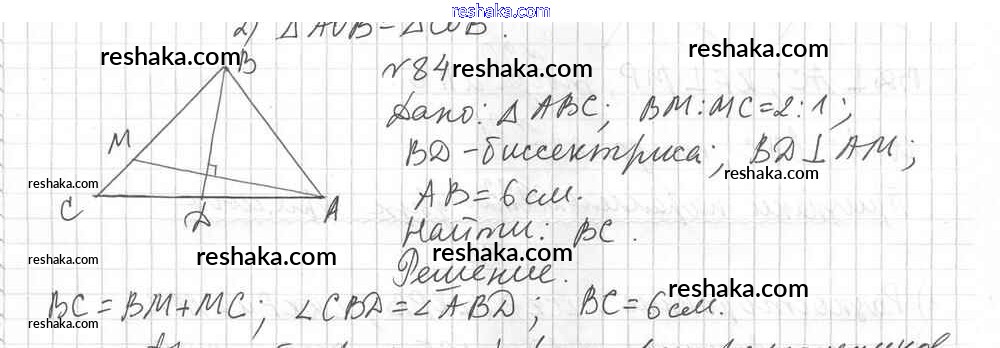 www.reshaka.com
2) △AOB = △COB.
reshaka.com
B
№84
reshaka.com
Дано: △ABC; BM:MC=2:1;
M
reshaka.com
BD - биссектриса; BD⊥AM;
reshaka.com
reshaka.com
AB = 6 см.
C
D
A
Найти: BC.
reshaka.com
reshaka.com
reshaka.com
Решение.
reshaka.com
BC = BM + MC; ∠CBD = ∠ABD; BC = 6 см.
reshaka.com